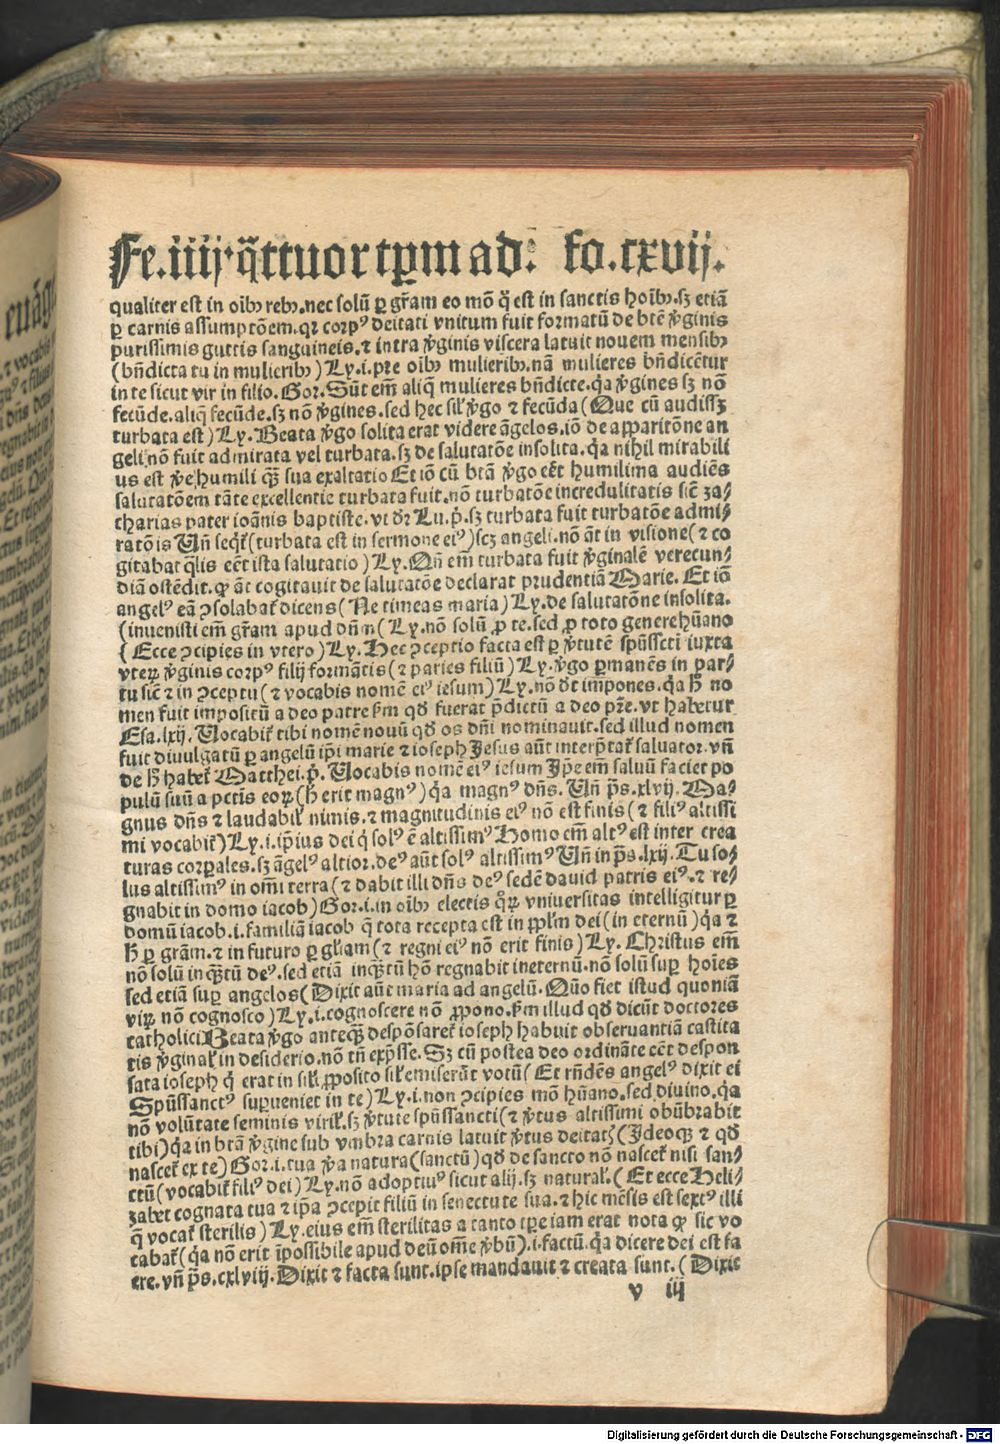 Fe.iiij.q̃ttuor tp̃m ad: fo.cxvij.
qualiter est in oĩbꝰ rebꝰ.nec solũ ꝑ gr̃am eo mõ q̃ est in sanctis hoĩbꝰ.sꝫ etiã
ꝑ carnis assumptõem.qꝛ corpꝰ deitati vnitum fuit formatũ de btẽ v̾ginis
purissimis guttis sanguineis.⁊ intra v̾ginis viscera latuit nouem mensibꝰ
(bñdicta tu in mulieribꝰ) Ly.i.pre oĩbꝰ mulieribꝰ.nã mulieres bñdicẽtur
in te sicut vir in filio. Gor. Sũt em̃ aliq̃ mulieres bñdicte.q̃a v̾gines sꝫ nõ
fecũde.aliq̃ fecũde.sꝫ nõ v̾gines.sed hec sil̾ v̾go ⁊ fecũda (Que cũ audissꝫ
turbata est) Ly. Beata v̾go solita erat videre ãgelos.iõ de apparitõne an
geli nõ fuit admirata vel turbata.sꝫ de salutatõe insolita.q̃a nihil mirabili
us est v̾e humili qꝫ̃ sua exaltatio Et iõ cũ btã v̾go eẽt humilima audiẽs
salutatõem tãte excellentie turbata fuit.nõ turbatõe incredulitatis sic̃ za⸗
charias pater ioãnis baptiste.vt dr̃ Lu.p̃.sꝫ turbata fuit turbatõe admi⸗
ratõis Uñ seqt̾ (turbata est in sermone eiꝰ) scꝫ angeli.nõ ãt in visione (⁊ co
gitabat q̃lis eẽt ista salutatio) Ly. Qñ em̃ turbata fuit v̾ginalẽ verecun⸗
diã ostẽdit.ꝙ ãt cogitauit de salutatõe declarat prudentiã Marie. Et iõ
angelꝰ eã ↄsolabat̾ dicens (Ne timeas maria) Ly.de salutatõne insolita.
(inuenisti em̃ gr̃am apud dñm (Ly.nõ solũ ꝓ te.sed ꝓ toto genere hũano
(Ecce ↄcipies in vtero) Ly. Hec ↄceptio facta est ꝑ v̾tutẽ spũssctĩ iuxta
vteꝝ v̾ginis corpꝰ filij formãtis (⁊ paries filiũ) Ly. v̾go ꝑmanẽs in par⸗
tu sic̃ ⁊ in ↄceptu (⁊ vocabis nomẽ eiꝰ iesum) Ly.nõ dt̃ im̃pones.q̃a h̾ no
men fuit impositũ a deo patre sm̃ qđ fuerat p̃dictũ a deo pr̃e.vt habetur
Esa.lxij. Uocabit̾ tibi nomẽ nouũ qđ os dñi nominauit.sed illud nomen
fuit diuulgatũ ꝑ angelũ ip̃i marie ⁊ ioseph Jesus aũt interp̃tat̾ saluator.vñ
de h̾ habet̾ Matthei.p̃. Uocabis nomẽ eiꝰ iesum Jp̃e em̃ saluũ faciet po
pulũ suũ a pctĩs eoꝝ (h̾ erit magnꝰ) q̃a magnꝰ dñs. Uñ ps̃.xlvij. Ma⸗
gnus dñs ⁊ laudabil̾ nimis.⁊ magnitudinis eiꝰ nõ est finis (⁊ filiꝰ altissi
mi vocabit̾) Ly.i.ip̃ius dei q̇ solꝰ ẽ altissimꝰ Homo em̃ altꝰ est inter crea
turas corꝑales.sꝫ ãgelꝰ altior.deꝰ aũt solꝰ altissimꝰ Uñ in ps̃.lxij. Tu so⸗
lus altissimꝰ in om̃i terra (⁊ dabit illi dñs deꝰ sedẽ dauid patris eiꝰ.⁊ re⸗
gnabit in domo iacob) Gor.i.in oĩbꝰ electis qꝝ vniuersitas intelligitur ꝑ
domũ iacob.i.familiã iacob q̃ tota recepta est in ppl̾m dei (in eternũ) q̃a ⁊
h̾ ꝑ grãm.⁊ in futuro ꝑ gl̾iam (⁊ regni eiꝰ nõ erit finis) Ly. Christus em̃
nõ solũ inq̃ꝫtũ deꝰ.sed etiã inq̃ꝫtũ hõ regnabit ineternũ.nõ solũ suꝑ hoĩes
sed etiã suꝑ angelos (Dixit aũt maria ad angelũ. Quõ fiet istud quoniã
viꝝ nõ cognosco) Ly.i.cognoscere nõ ꝓpono.sm̃ illud qđ dicũt doctores
catholici Beata v̾go anteqꝫ̃ despõsaret̾ ioseph habuit obseruantiã castita
tis v̾ginal̾ in desiderio.nõ tñ exp̃sse. Sꝫ cũ postea deo ordinãte eẽt despon
sata ioseph q̇ erat in sil̾i ꝓposito sil̾ emiserũt votũ (Et rñdẽs angelꝰ dixit ei
Spũssanctꝰ suꝑueniet in te) Ly.i.non ↄcipies mõ hũano.sed diuino.q̃a
nõ volũtate seminis viril̾.sꝫ v̾tute spũssancti (⁊ v̾tus altissimi obũbrabit
tibi) q̃a in btã v̾gine sub vmbra carnis latuit v̾tus deitatꝭ (Jdeoqꝫ ⁊ qđ
nascet̾ ex te) Gor.i.tua v̾a natura (sanctũ) qđ de sancto nõ nascet̾ nisi san⸗
ctũ (vocabit̾ filiꝰ dei) Ly.nõ adoptiuꝰ sicut alij.sꝫ natural̾. (Et ecce Heli⸗
zabet cognata tua ⁊ ip̃a ↄcepit filiũ in senectute sua.⁊ hic mẽsis est sextꝰ illi
q̃ vocat̾ sterilis) Ly.eius em̃ sterilitas a tanto tp̃e iam erat nota ꝙ sic vo
cabat̾ (q̃a nõ erit ĩpossibile apud deũ om̃e v̾bũ).i.factũ.q̃a dicere dei est fa
cere.vñ ps̃.cxlviij. Dixit ⁊ facta sunt.ipse mandauit ⁊ creata sunt. (Dixit
v iij
Digitalisierung gefördert durch die Deutsche Forschungsgemeinschaft - DFG